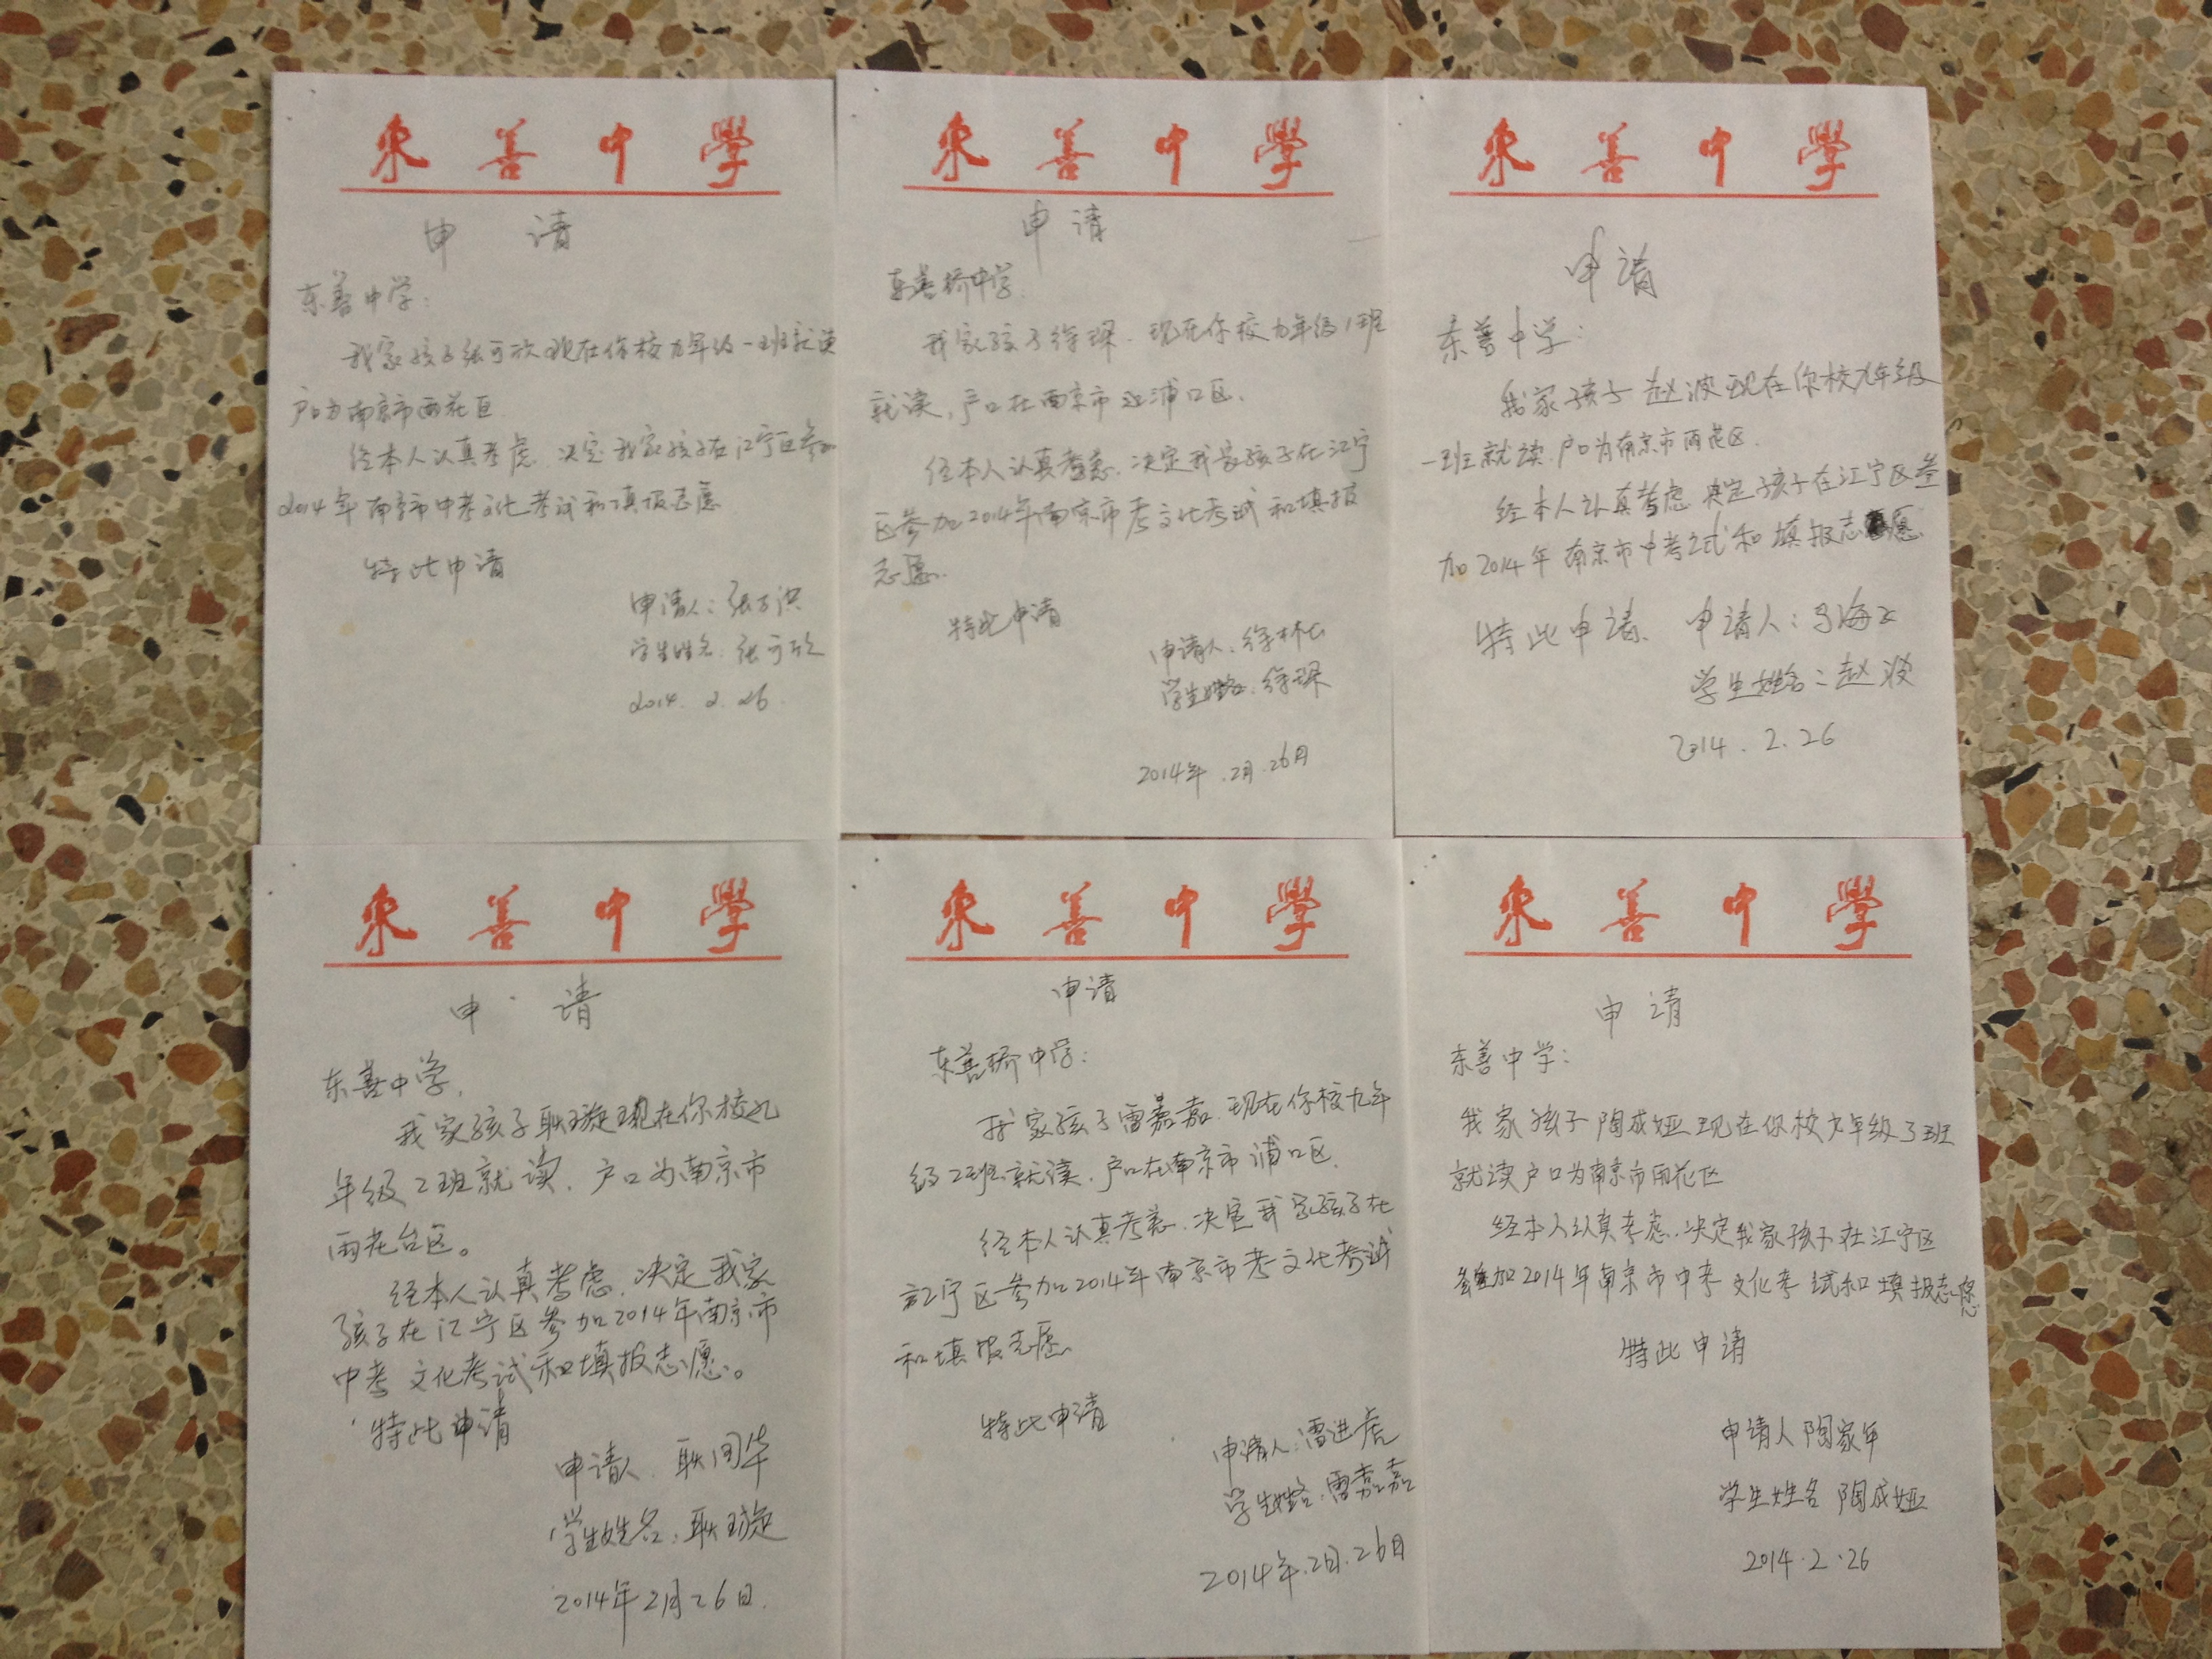 東善中學
申 请
东善中学:
我家孩子张可欣现在你校九年级一班就读
户口为南京市雨花区.
经本人认真考虑 决定我家孩子在江宁区参加
2014年南京市中考文化考试和填报志愿
特此申请
申请人:张
学生姓名:张可欣
2014.2.26.
東善中學
申请
东善桥中学:
我家孩子徐琛.现在你校九年级1班
就读,户口在南京市 浦口区.
经本人认真考虑.决定我家孩子在江宁
区参加2014年南京市考文化考试和填报
志愿.
特此申请
申请人:徐林
学生姓名:徐琛
2014年.2月.26月
東善中學
申请
东善中学:
我家孩子赵波现在你校九年级
一班就读.户口为南京市雨花区.
经本人认真考虑 决定孩子在江宁区参
加2014年南京市中考 和填报志愿
特此申请. 申请人:马海
学生姓名:赵波
2014.2.26
東善中學
申 请
东善中学,
我家孩子耿璇现在你校九
年级2班就读.户口为南京市
雨花台区。
经本人认真考虑.决定我家
孩子在江宁区参加2014年南京市
中考文化考试和填报志愿。
特此申请
申请人.耿国华
学生姓名:耿璇
2014年2月26日.
東善中學
申请
东善桥中学:
我家孩子雷嘉嘉.现在你校九年
级2班就读.户口在南京市浦口区.
经本人认真考虑.决定我家孩子在
江宁区参加2014年南京市考文化考试
和填报志愿.
特此申请
申请人:雷进虎
学生姓名:雷嘉嘉
2014年.2月.26日
東善中學
申请
东善中学:
我家孩子陶成娅现在你校九年级3班
就读户口为南京市雨花区
经本人认真考虑.决定我家孩子在江宁区
参加2014年南京市中考文化考试和填报志愿
特此申请
申请人陶家年
学生姓名 陶成娅
2014.2.26